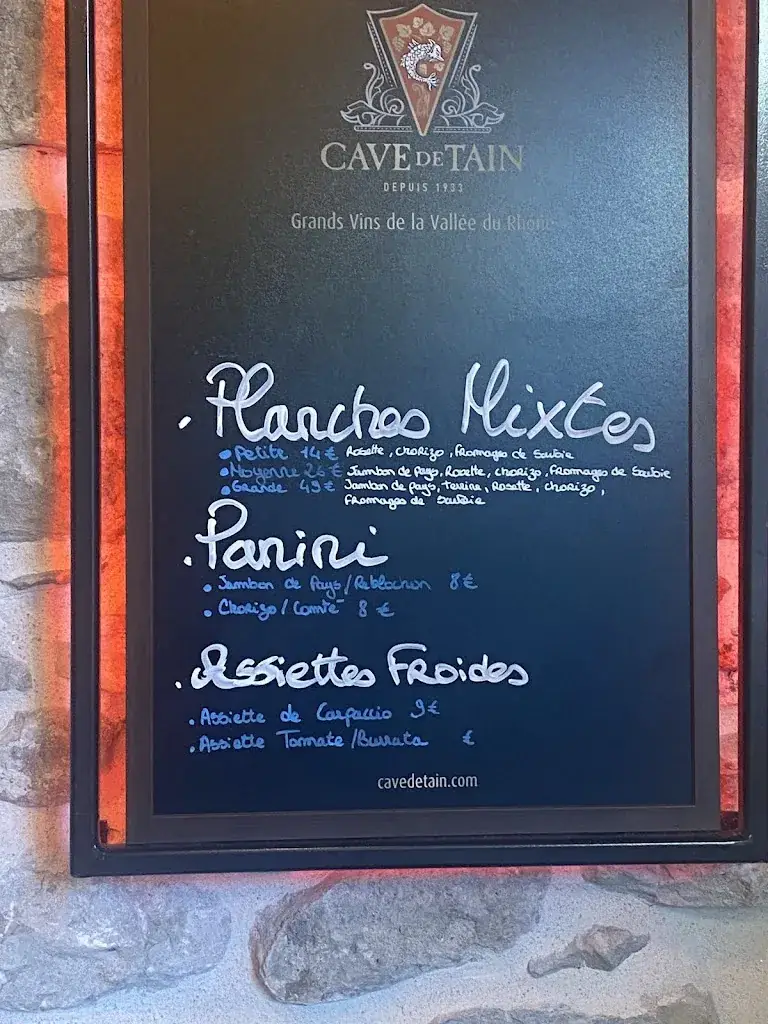 CAVE DE TAIN
DEPUIS 1933
Grands Vins de la Vallée du Rhône
. Planches Mixtes
• Petite 14 € Rosette, chorizo, fromages de Savoie
• Moyenne 26 € Jambon de pays, Rosette, chorizo, fromages de Savoie
• Grande 49 € Jambon de pays, terrine, Rosette, chorizo,
fromages de Savoie
. Panini
• Jambon de Pays/Reblochon 8 €
• Chorizo/Comté 8 €
. Assiettes Froides
. Assiette de Carpaccio 9 €
. Assiette Tomate/Burrata €
cavedetain.com